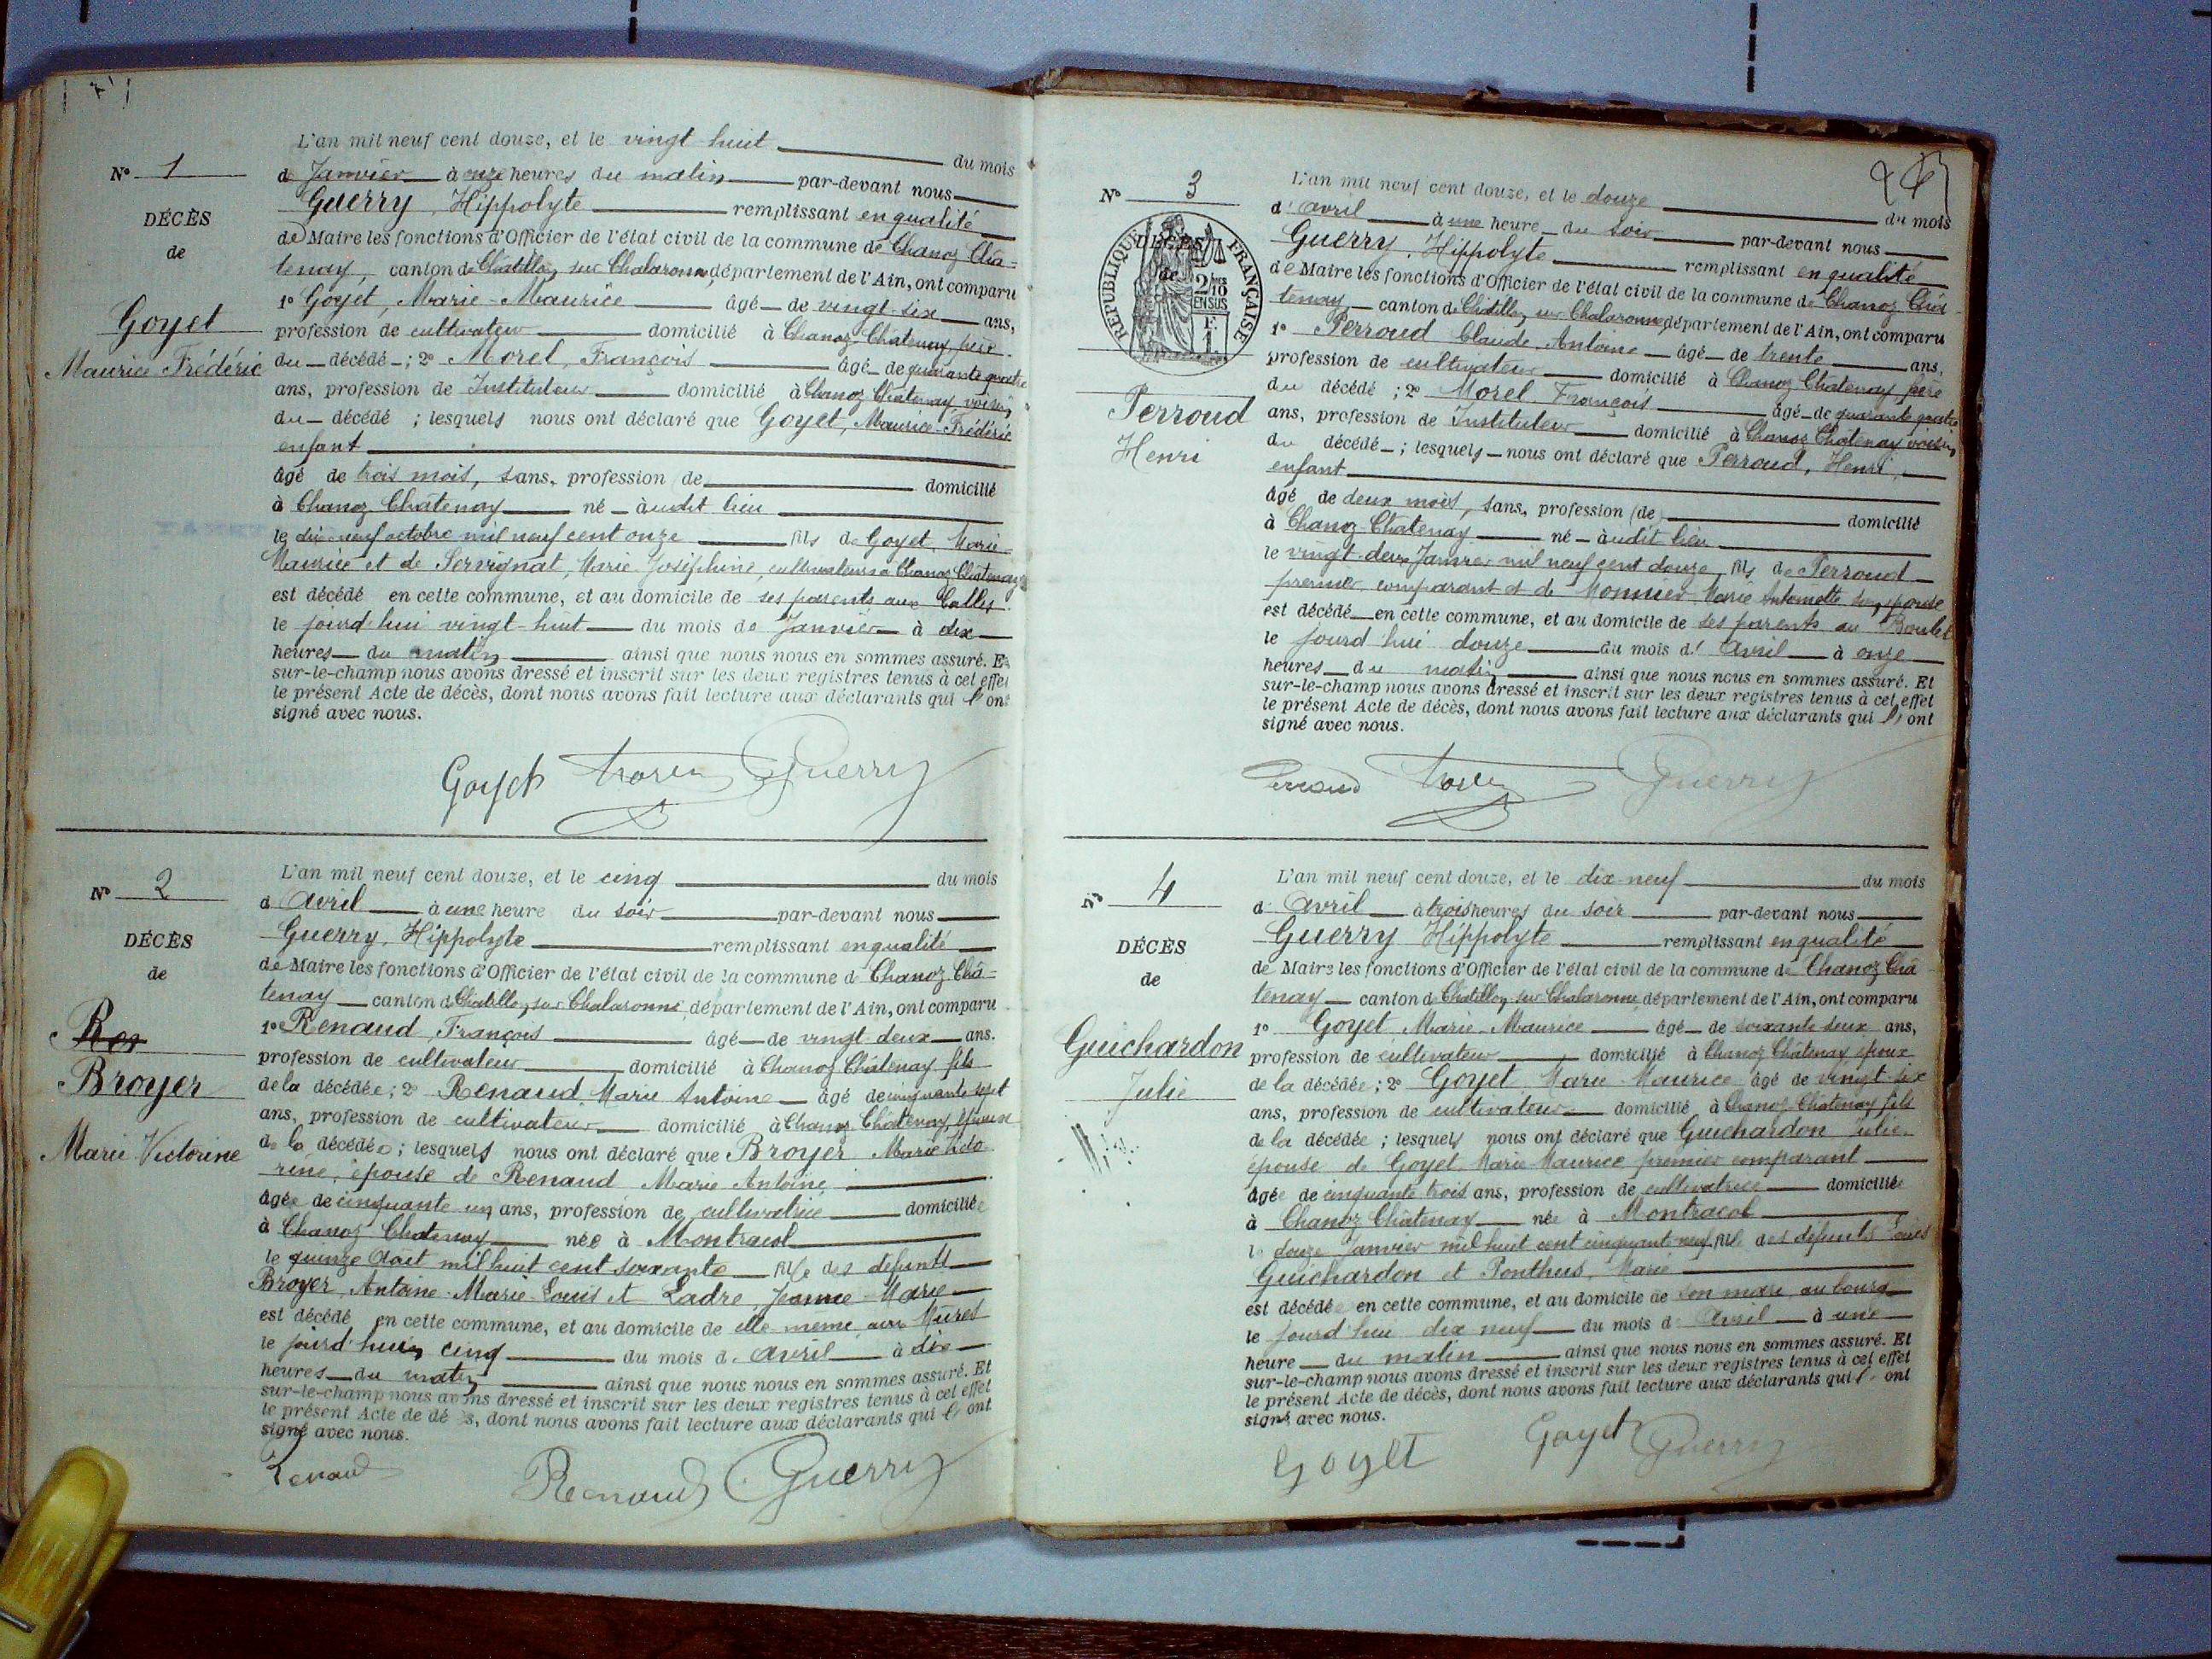 L'an mil neuf cent douze, et le vingt huit du mois
N° 1
de Janvier à onze heures du matin par-devant nous
Guerry, Hippolyte remplissant en qualité
DÉCÈS
de Maire les fonctions d'Officier de l'état civil de la commune de Chanoz Châ-
de
tenay, canton de Châtillon sur Chalaronne, département de l'Ain, ont comparu
1° Goyet, Marie-Maurice âgé de vingt-six ans,
Goyet
profession de cultivateur domicilié à Chanoz Châtenay, père
Maurice Frédéric
du décédé ; 2° Morel, François âgé de quarante quatre
ans, profession de Instituteur domicilié à Chanoz Châtenay voisin
du décédé ; lesquels nous ont déclaré que Goyet, Maurice-Frédéric
enfant
âgé de trois mois, sans, profession de domicilié
à Chanoz Châtenay né audit lieu
le dix-neuf octobre mil neuf cent onze fils de Goyet, Marie
Maurice et de Servignat, Marie Joséphine, cultivateurs à Chanoz Châtenay
est décédé en cette commune, et au domicile de ses parents aux Calles
le jourd'hui vingt-huit du mois de Janvier à dix
heures du matin ainsi que nous nous en sommes assuré. Et
sur-le-champ nous avons dressé et inscrit sur les deux registres tenus à cet effet
le présent Acte de décès, dont nous avons fait lecture aux déclarants qui l'ont
signé avec nous.
Goyet Morel Guerry
L'an mil neuf cent douze, et le cinq du mois
N° 2
d'Avril à une heure du soir par-devant nous
Guerry, Hippolyte remplissant en qualité
DÉCÈS
de Maire les fonctions d'Officier de l'état civil de la commune de Chanoz Châ-
de
tenay canton de Châtillon sur Chalaronne, département de l'Ain, ont comparu
1° Renaud, François âgé de vingt-deux ans.
Ren
profession de cultivateur domicilié à Chanoz Châtenay fils
Broyer
de la décédée ; 2° Renaud, Marie Antoine âgé de cinquante sept
ans, profession de cultivateur domicilié à Chanoz Châtenay, époux
Marie Victorine
de la décédée ; lesquels nous ont déclaré que Broyer Marie Victo
rine, épouse de Renaud Marie Antoine
âgée de cinquante un ans, profession de cultivatrice domiciliée
à Chanoz Châtenay née à Montracol
le quinze Août mil huit cent soixante fille des défunts
Broyer, Antoine-Marie-Louis et Ladre, Jeanne-Marie
est décédé en cette commune, et au domicile de elle-même aux Mures
le jourd'hui cinq du mois d'Avril à dix
heures du matin ainsi que nous nous en sommes assuré. Et
sur-le-champ nous avons dressé et inscrit sur les deux registres tenus à cet effet
le présent Acte de décès, dont nous avons fait lecture aux déclarants qui l'ont
signé avec nous.
Renaud Renaud Guerry
L'an mil neuf cent douze, et le douze du mois
N° 3
d'avril à une heure du soir par-devant nous
Guerry, Hippolyte remplissant en qualité
DÉCÈS
de
RÉPUBLIQUE FRANÇAISE
2/10
EN SUS
de Maire les fonctions d'Officier de l'état civil de la commune de Chanoz Châ
tenay canton de Châtillon sur Chalaronne, département de l'Ain, ont comparu
1° Perroud Claude-Antoine âgé de trente ans,
profession de cultivateur domicilié à Chanoz Châtenay père
Perroud
du décédé ; 2° Morel François âgé de quarante quatre
ans, profession de Instituteur domicilié à Chanoz Châtenay voisin
Henri
du décédé ; lesquels nous ont déclaré que Perroud, Henri,
enfant
âgé de deux mois, sans, profession (de) domicilié
à Chanoz-Châtenay né audit lieu
le vingt-deux Janvier mil neuf cent douze, fils de Perroud
premier comparant et de Monnier Marie Antoinette son épouse
est décédé en cette commune, et au domicile de ses parents au Boulet
le jourd'hui douze du mois d'Avril à onze
heures du matin ainsi que nous nous en sommes assuré. Et
sur-le-champ nous avons dressé et inscrit sur les deux registres tenus à cet effet
le présent Acte de décès, dont nous avons fait lecture aux déclarants qui l'ont
signé avec nous.
Perroud Morel Guerry
L'an mil neuf cent douze, et le dix-neuf du mois
N° 4
d'Avril à trois heures du soir par-devant nous
Guerry Hippolyte remplissant en qualité
DÉCÈS
de Maire les fonctions d'Officier de l'état civil de la commune de Chanoz Châ
de
tenay canton de Châtillon sur Chalaronne, département de l'Ain, ont comparu
1° Goyet Marie-Maurice âgé de soixante deux ans,
Guichardon
profession de cultivateur domicilié à Chanoz Châtenay époux
Julie
de la décédée ; 2° Goyet Marie-Maurice âgé de vingt-six
ans, profession de cultivateur domicilié à Chanoz Châtenay fils
de la décédée ; lesquels nous ont déclaré que Guichardon Julie
épouse de Goyet Marie-Maurice premier comparant
âgée de cinquante trois ans, profession de cultivatrice domiciliée
à Chanoz Châtenay née à Montracol
le douze Janvier mil huit cent cinquant-neuf, fille des défunts Louis
Guichardon et Ponthus, Marie
est décédée en cette commune, et au domicile de son mari au bourg
le jourd'hui dix neuf du mois d'Avril à une
heure du matin ainsi que nous nous en sommes assuré. Et
sur-le-champ nous avons dressé et inscrit sur les deux registres tenus à cet effet
le présent Acte de décès, dont nous avons fait lecture aux déclarants qui l'ont
signé avec nous.
Goyet Goyet Guerry